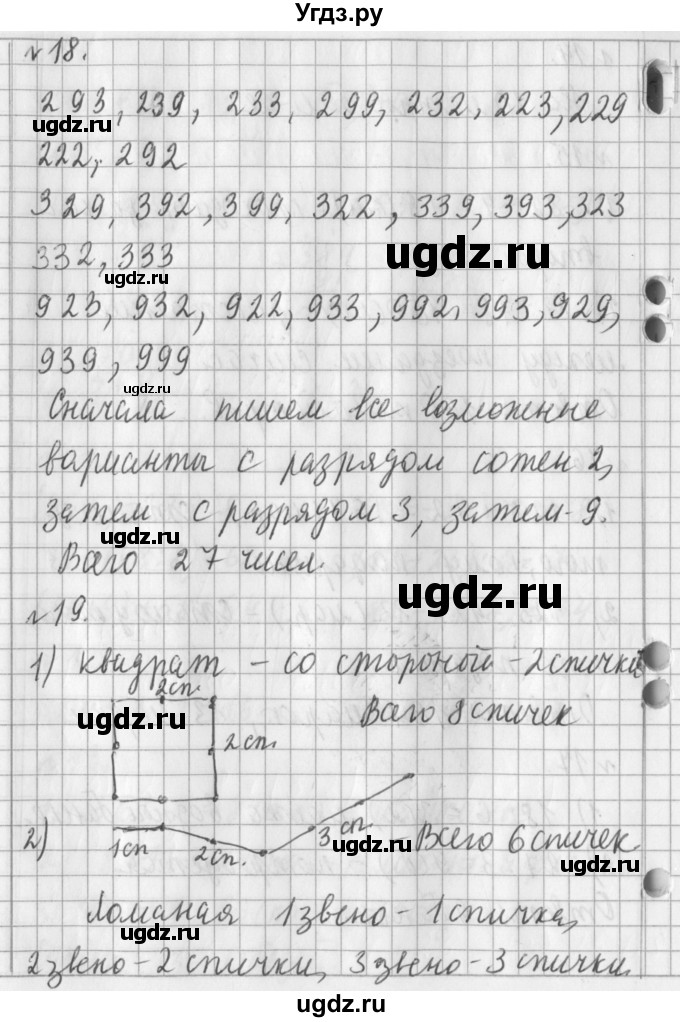 Угдз.ру
№18.
293, 239, 233, 299, 232, 223, 229
ugdz.ru
222, 292
329, 392, 399, 322, 339, 393, 323
ugdz.ru
332, 333
ugdz.ru
923, 932, 922, 933, 992, 993, 929,
939, 999
ugdz.ru
Сначала пишем все возможные
варианты с разрядом сотен 2,
затем с разрядом 3, затем - 9.
ugdz.ru
Всего 27 чисел.
ugdz.ru
№19.
1) квадрат - со стороной - 2 спички
2 сп.
ugdz.ru
Всего 8 спичек
2 сп.
2)
1 сп
2 сп.
3 сп.
- Всего 6 спичек
ugdz.ru
ugdz.ru
Ломаная 1 звено - 1 спичка,
2 звено - 2 спички, 3 звено - 3 спички.
ugdz.ru
ugdz.ru